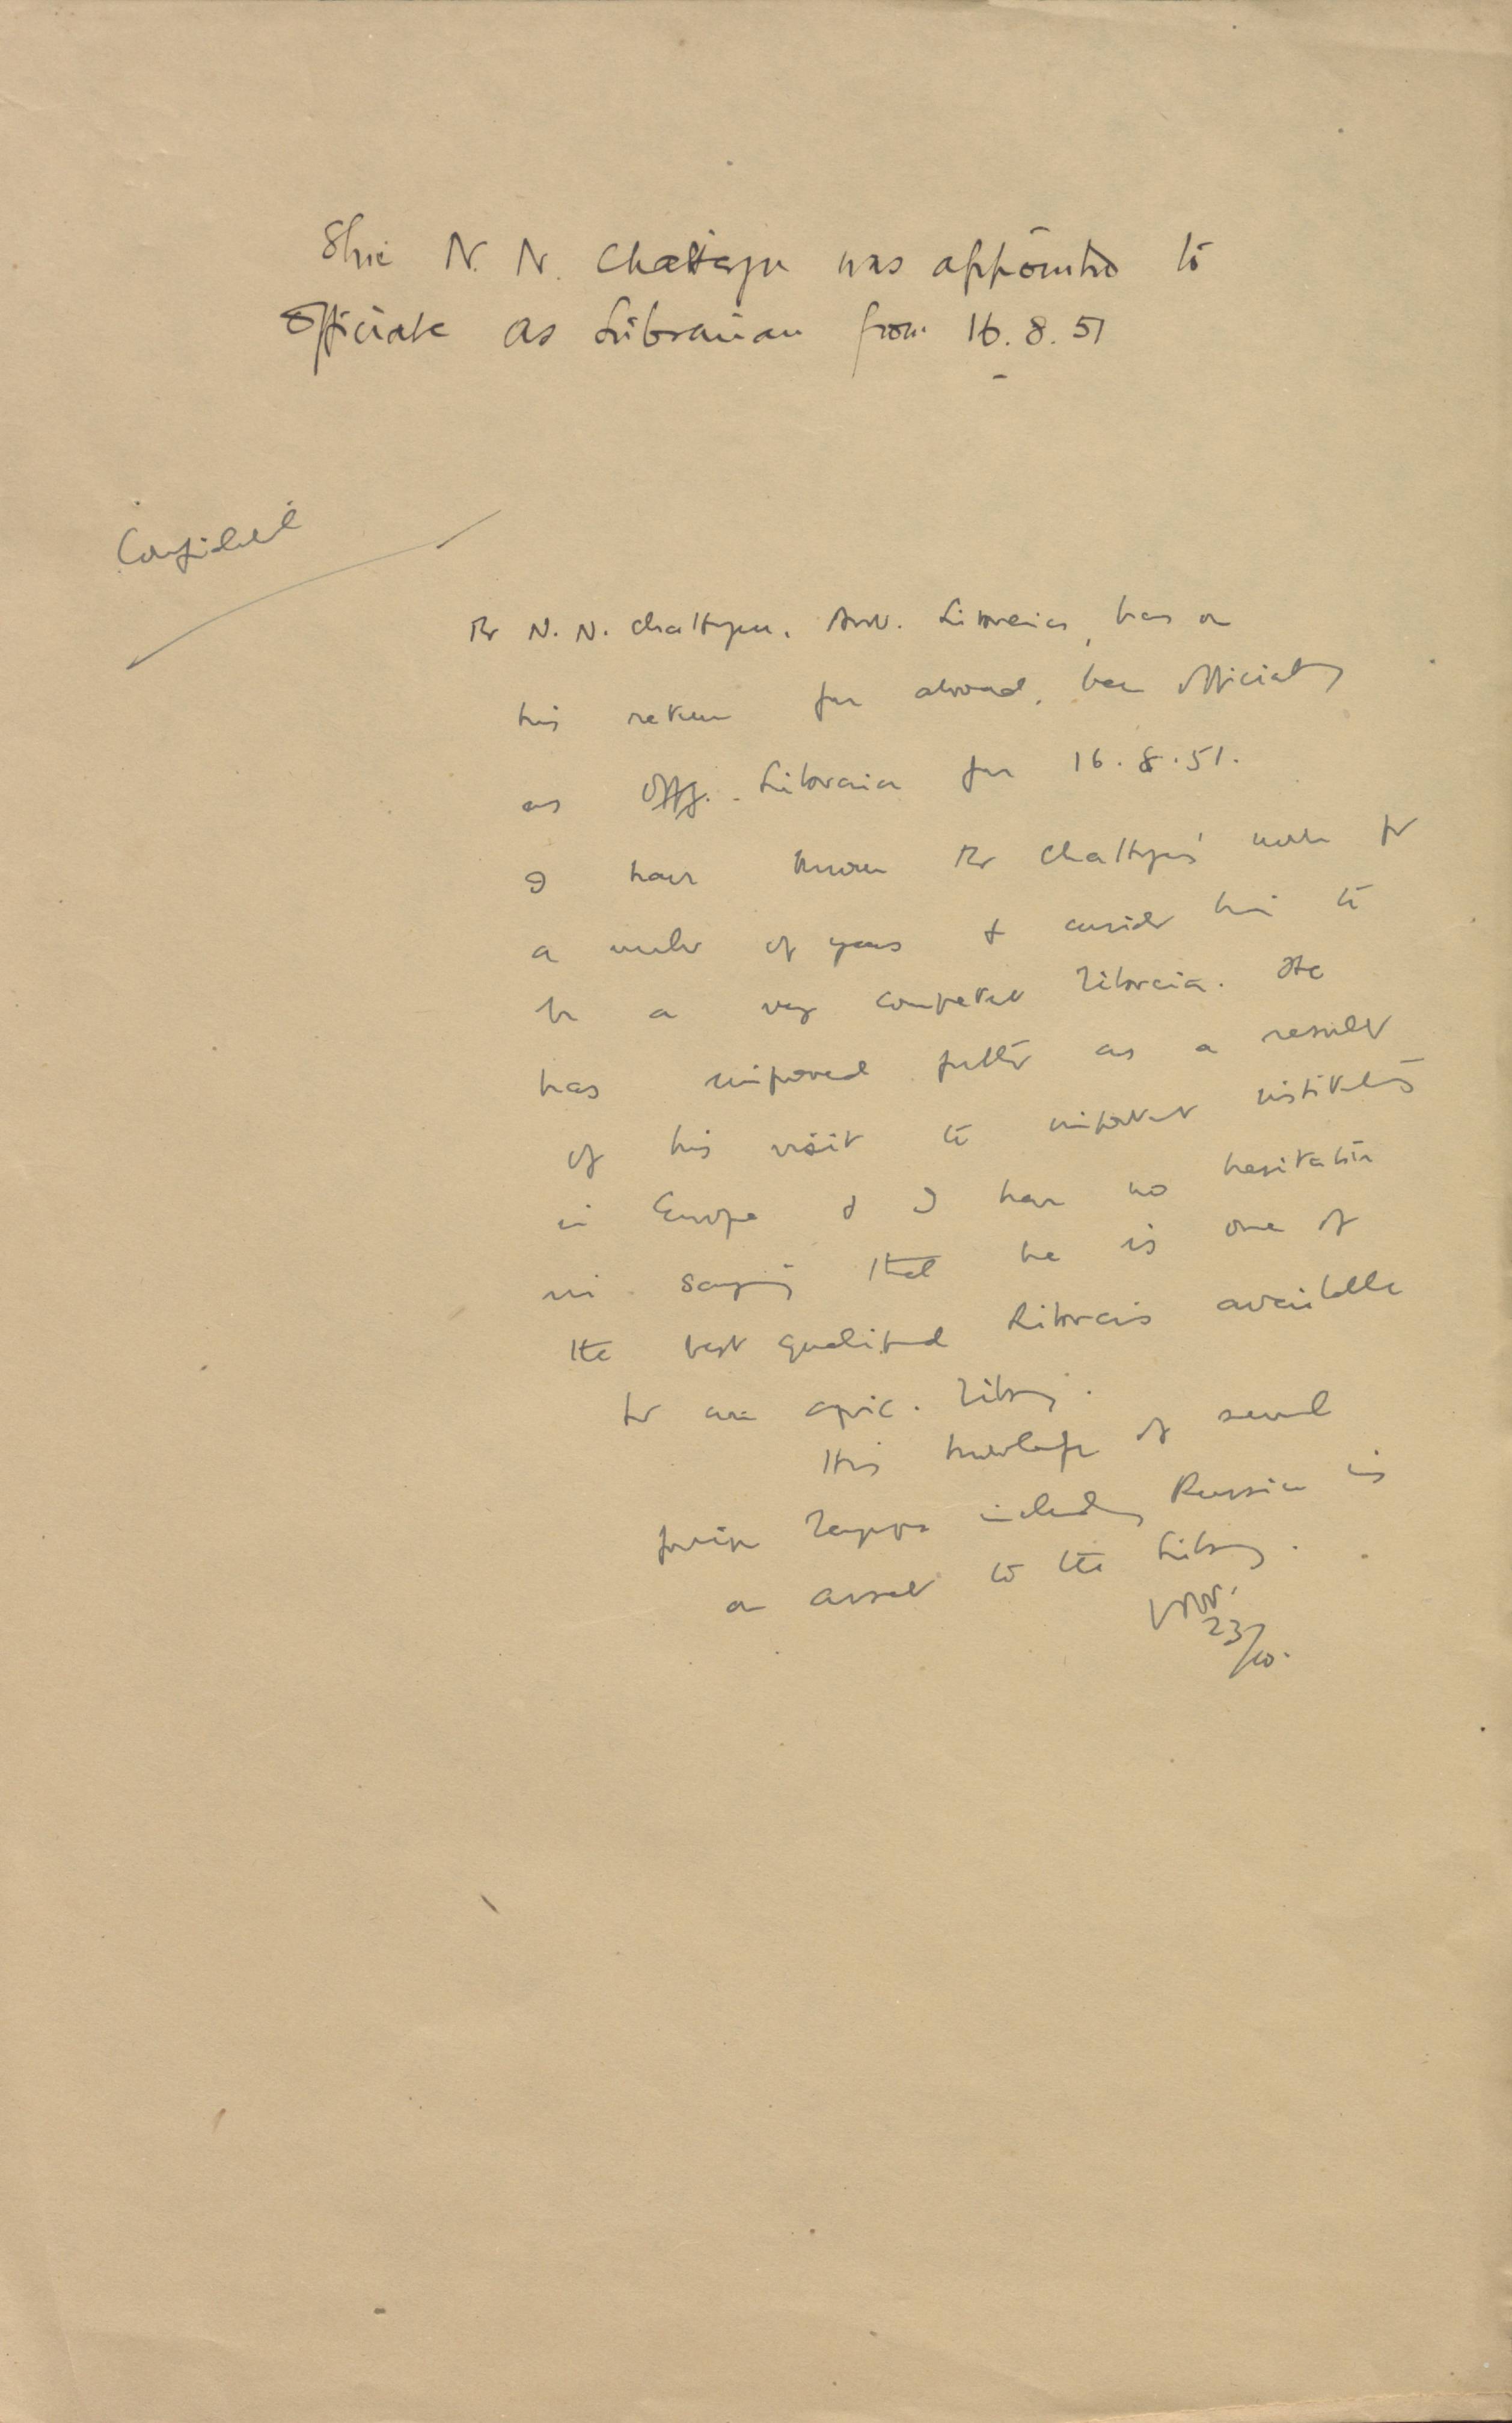 Shri N. N. Chatterjee was appointed to
officiate as Librarian from 16.8.51
Confidential
Mr N. N. Chatterjee, Asst. Librarian, has on
his return from abroad, been officiating
as Offg. Librarian from 16.8.51.
I have known Mr Chatterjee's work for
a number of years & consider him to
be a very competent librarian. He
has improved further as a result
of his visit to important institutes
in Europe & I have no hesitation
in saying that he is one of
the best qualified Librarians available
for an agric. library.
His knowledge of several
foreign languages including Russian is
an asset to the Library.
23/10.